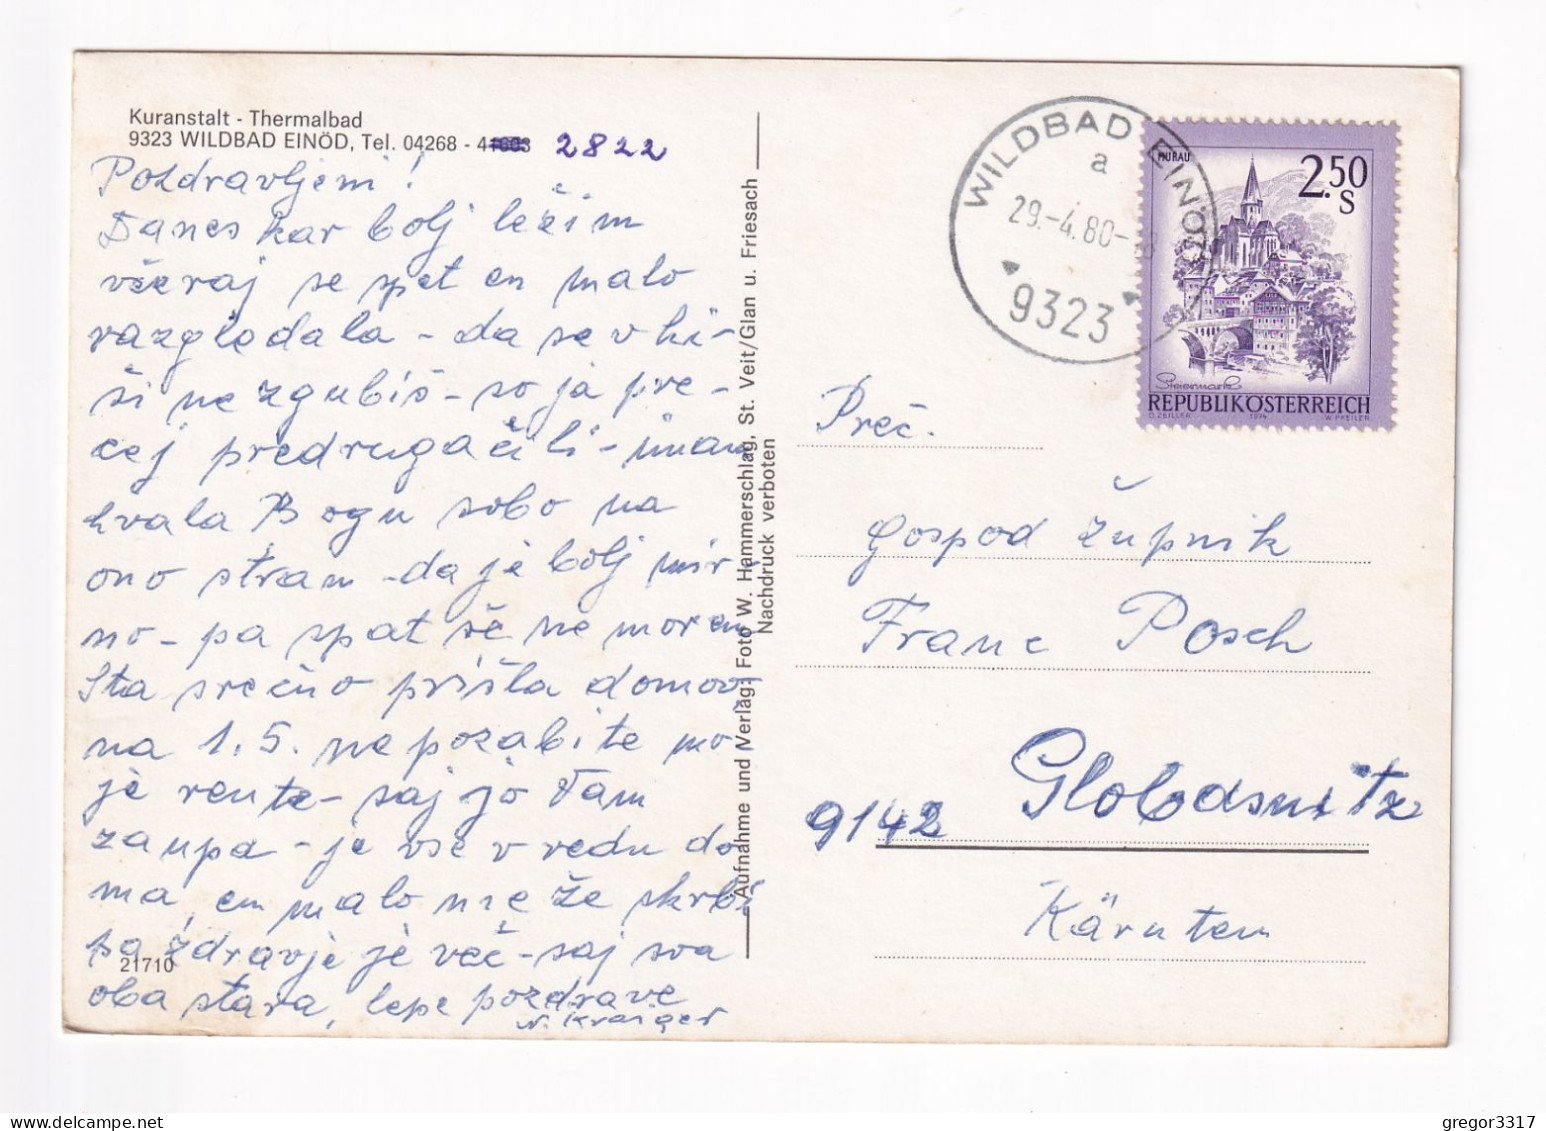 Kuranstalt - Thermalbad
9323 WILDBAD EINÖD, Tel. 04268 - 2822
Pozdravljeni!
Danes kar bolj ležim
včeraj se spet en malo
razgledala - da se v hi-
ši ne zgubiš - so ja pre-
cej predrugačili - imam
hvala Bogu sobo na
ono stran - da je bolj mir
no - pa spat še ne morem
Sta srečno prišla domov -
na 1.5. ne pozabite mo-
je rente - saj jo Tam
zaupa - je vse v redu do
ma, en malo me že skrbi
pa zdravje je več - saj sva
oba stara, lepe pozdrave
N. Kraiger
21710
Aufnahme und Verlag: Foto W. Hammerschlag, St. Veit/Glan u. Friesach
Nachdruck verboten
WILDBAD EINÖD
a
29.-4.80-
9323
MURAU
2.50
S
Steiermark
REPUBLIK ÖSTERREICH
O. ZEILLER 1974 W. PFEILER
Preč.
Gospod Župnik
Franc Posch
9142 Globasnitz
Kärnten
gregor3317